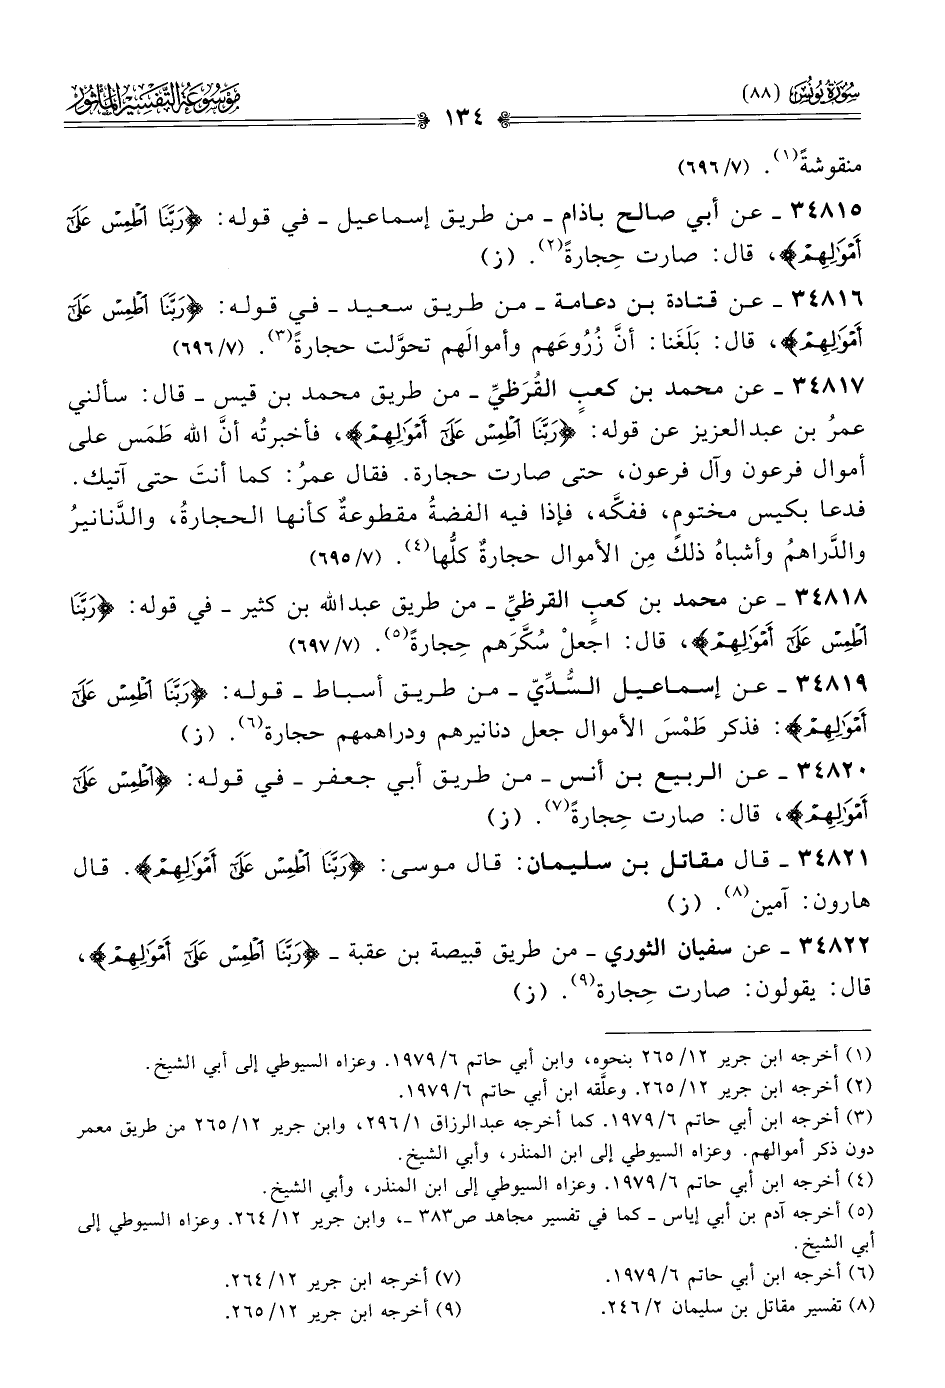 سورة يونس (٨٨)
١٣٤
موسوعة التفسير المأثور
منقوشةً(١). (٧/ ٦٩٦)
٣٤٨١٥ ـ عن أبي صالح باذام ـ من طريق إسماعيل ـ في قوله: ﴿رَبَّنَا ٱطْمِسْ عَلَىٰٓ
أَمْوَٰلِهِمْ﴾، قال: صارت حِجارةً(٢). (ز)
٣٤٨١٦ ـ عن قتادة بن دعامة ـ من طريق سعيد ـ في قوله: ﴿رَبَّنَا ٱطْمِسْ عَلَىٰٓ
أَمْوَٰلِهِمْ﴾، قال: بَلَغَنا: أنَّ زُرُوعَهم وأموالَهم تحوَّلت حجارةً(٣). (٧/ ٦٩٦)
٣٤٨١٧ ـ عن محمد بن كعبٍ القُرَظيِّ ـ من طريق محمد بن قيس ـ قال: سألني
عمرُ بن عبدالعزيز عن قوله: ﴿رَبَّنَا ٱطْمِسْ عَلَىٰٓ أَمْوَٰلِهِمْ﴾، فأخبرتُه أنَّ الله طَمَس على
أموال فرعون وآل فرعون، حتى صارت حجارة. فقال عمرُ: كما أنتَ حتى آتيك.
فدعا بكيس مختومٍ، ففكَّه، فإذا فيه الفضةُ مقطوعةٌ كأنها الحجارةُ، والدَّنانيرُ
والدَّراهمُ وأشباهُ ذلك مِن الأموال حجارةٌ كلُّها(٤). (٧/ ٦٩٥)
٣٤٨١٨ ـ عن محمد بن كعبٍ القرظيِّ ـ من طريق عبدالله بن كثير ـ في قوله: ﴿رَبَّنَا
ٱطْمِسْ عَلَىٰٓ أَمْوَٰلِهِمْ﴾، قال: اجعلْ سُكَّرَهم حِجارةً(٥). (٧/ ٦٩٧)
٣٤٨١٩ ـ عن إسماعيل السُّدِّيّ ـ من طريق أسباط ـ قوله: ﴿رَبَّنَا ٱطْمِسْ عَلَىٰٓ
أَمْوَٰلِهِمْ﴾: فذكر طَمْسَ الأموال جعل دنانيرهم ودراهمهم حجارة(٦). (ز)
٣٤٨٢٠ ـ عن الربيع بن أنس ـ من طريق أبي جعفر ـ في قوله: ﴿ٱطْمِسْ عَلَىٰٓ
أَمْوَٰلِهِمْ﴾، قال: صارت حِجارةً(٧). (ز)
٣٤٨٢١ ـ قال مقاتل بن سليمان: قال موسى: ﴿رَبَّنَا ٱطْمِسْ عَلَىٰٓ أَمْوَٰلِهِمْ﴾. قال
هارون: آمين(٨). (ز)
٣٤٨٢٢ ـ عن سفيان الثوري ـ من طريق قبيصة بن عقبة ـ ﴿رَبَّنَا ٱطْمِسْ عَلَىٰٓ أَمْوَٰلِهِمْ﴾،
قال: يقولون: صارت حِجارة(٩). (ز)
(١) أخرجه ابن جرير ١٢/ ٢٦٥ بنحوه، وابن أبي حاتم ٦/ ١٩٧٩. وعزاه السيوطي إلى أبي الشيخ.
(٢) أخرجه ابن جرير ١٢/ ٢٦٥. وعلَّقه ابن أبي حاتم ٦/ ١٩٧٩.
(٣) أخرجه ابن أبي حاتم ٦/ ١٩٧٩. كما أخرجه عبدالرزاق ١/ ٢٩٦، وابن جرير ١٢/ ٢٦٥ من طريق معمر
دون ذكر أموالهم. وعزاه السيوطي إلى ابن المنذر، وأبي الشيخ.
(٤) أخرجه ابن أبي حاتم ٦/ ١٩٧٩. وعزاه السيوطي إلى ابن المنذر، وأبي الشيخ.
(٥) أخرجه آدم بن أبي إياس ـ كما في تفسير مجاهد ص٣٨٣ ـ، وابن جرير ١٢/ ٢٦٤. وعزاه السيوطي إلى
أبي الشيخ.
(٦) أخرجه ابن أبي حاتم ٦/ ١٩٧٩.
(٧) أخرجه ابن جرير ١٢/ ٢٦٤.
(٨) تفسير مقاتل بن سليمان ٢/ ٢٤٦.
(٩) أخرجه ابن جرير ١٢/ ٢٦٥.